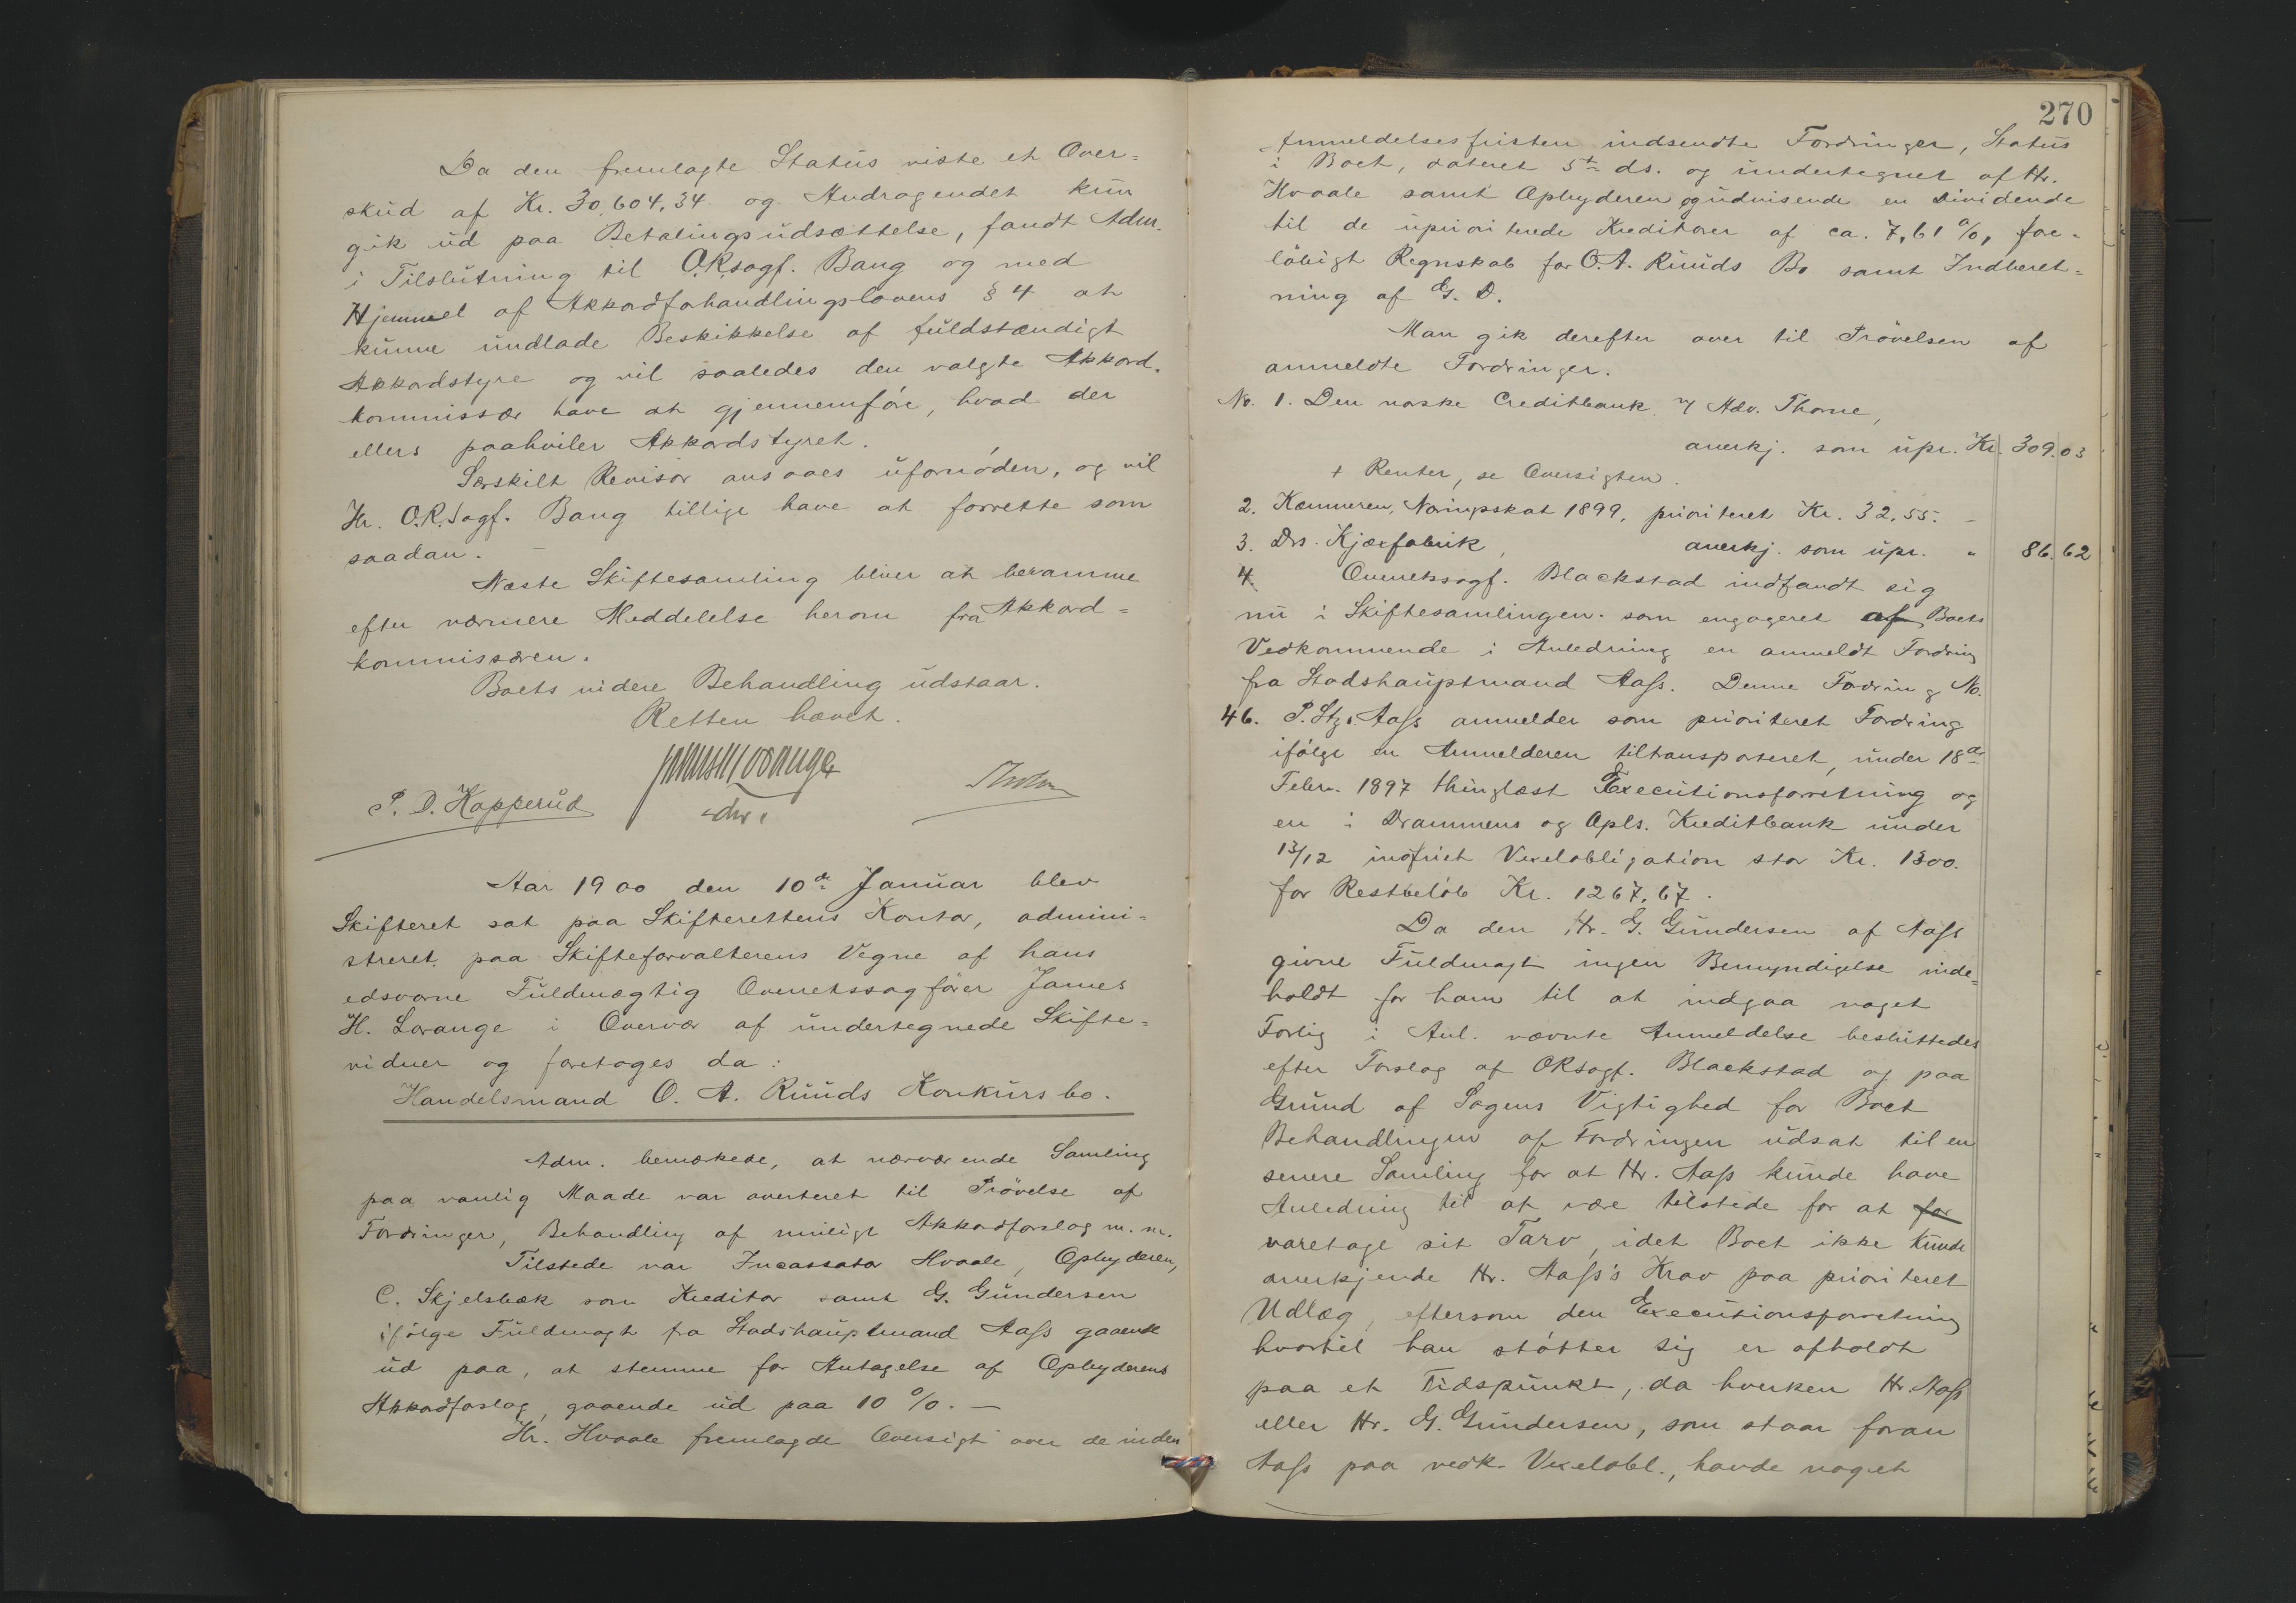 Da den fremlagte Status viste et Over=
skud af Kr. 30,604,34 og Andragendet kun
gik ud paa Betalingsudsættelse, fandt Adm.
i Tilslutning til O.R.sagf. Bang og med
Hjemmel af Akkordforhandlingslovens § 4 at
kunne undlade Beskikkelse af fuldstændigt
Akkordstyre og vil saaledes den valgte Akkord=
kommissær have at gjennemföre, hvad der
ellers paahviler Akkordstyret.
Særskilt Revisor ansaaes ufornöden, og vil
Hr. O.R.Sagf. Bang tillige have at forrette som
saadan. —
Næste Skiftesamling bliver at beramme
efter nærmere Meddelelse herom fra Akkord=
kommissæren.
Boets videre Behandling udstaar.
Retten hævet.
P. D. Kopperud
Aar 1900 den 10de Januar blev
Skifteret sat paa Skifterettens Kontor, admini=
streret paa Skifteforvalterens Vegne af hans
edsvorne Fuldmægtig Overretssagförer James
H. Lorange i Overvær af undertegnede Skifte=
vidner og foretoges da:
Handelsmand O. A. Ruuds Konkursbo.
Adm. bemærkede, at nærværende Samling
paa vanlig Maade var averteret til Prövelse af
Fordringer, Behandling af muligt Akkordforslag m. m.
Tilstede var Incassator Hvaale, Opbyderen,
C. Skjelsbæk som Kreditor samt G. Gundersen
ifölge Fuldmagt fra Stadshauptmand Aass gaaende
ud paa, at stemme for Antagelse af Opbyderens
Akkordforslag, gaaende ud paa 10 %. —
Hr. Hvaale fremlagde Oversigt over de inden
270
Anmeldelsesfristen indsendte Fordringer, Status
i Boet, dateret 5te ds. og undertegnet af Hr.
Hvaale samt Opbyderen og udvisende en Dividende
til de uprioriterede Kreditorer af ca. 7,61 %, fore=
löbigt Regnskab for O. A. Ruuds Bo samt Indberet=
ning af G. D.
Man gik derefter over til Prövelsen af
anmeldte Fordringer.
No. 1. Den norske Creditbank v/ Adv. Thorne,
anerkj. som upr. Kr. 309.03
+ Renter, se Oversigten.
2. Kæmneren, Næringsskat 1899, prioriteret Kr. 32,55. —
3. Drs. Kjæxfabrik, anerkj. som upr. " 86.62
4. Overretssagf. Blackstad indfandt sig
nu i Skiftesamlingen som engageret af Boets
Vedkommende i Anledning en anmeldt Fordring
fra Stadshauptmand Aass. Denne Fordring No.
46. P. Ltz. Aass anmelder som prioriteret Fordring
ifölge en Anmelderen tiltransporteret, under 18de
Febr. 1897 thinglæst Executionsforretning og
en i Drammens og Opls. Kreditbank under
13/12 indfriet Vexelobligation stor Kr. 1300.
for Restbelöb Kr. 1267,67.
Da den Hr. G. Gundersen af Aass
givne Fuldmagt ingen Bemyndigelse inde=
holdt for ham til at indgaa noget
Forlig i Anl. nævnte Anmeldelse besluttedes
efter Forslag af ORsagf. Blackstad og paa
Grund af Sagens Vigtighed for Boet
Behandlingen af Fordringen udsat til en
senere Samling for at Hr. Aass kunde have
Anledning til at være tilstede for at for
varetage sit Tarv, idet Boet ikke kunde
anerkjende Hr. Aass's Krav paa prioriteret
Udlæg, eftersom den Executionsforretning
hvortil han stötter sig er afholdt
paa et Tidspunkt, da hverken Hr. Aass
eller Hr. G. Gundersen, som staar foran
Aass paa vedk. Vexelobl., havde noget